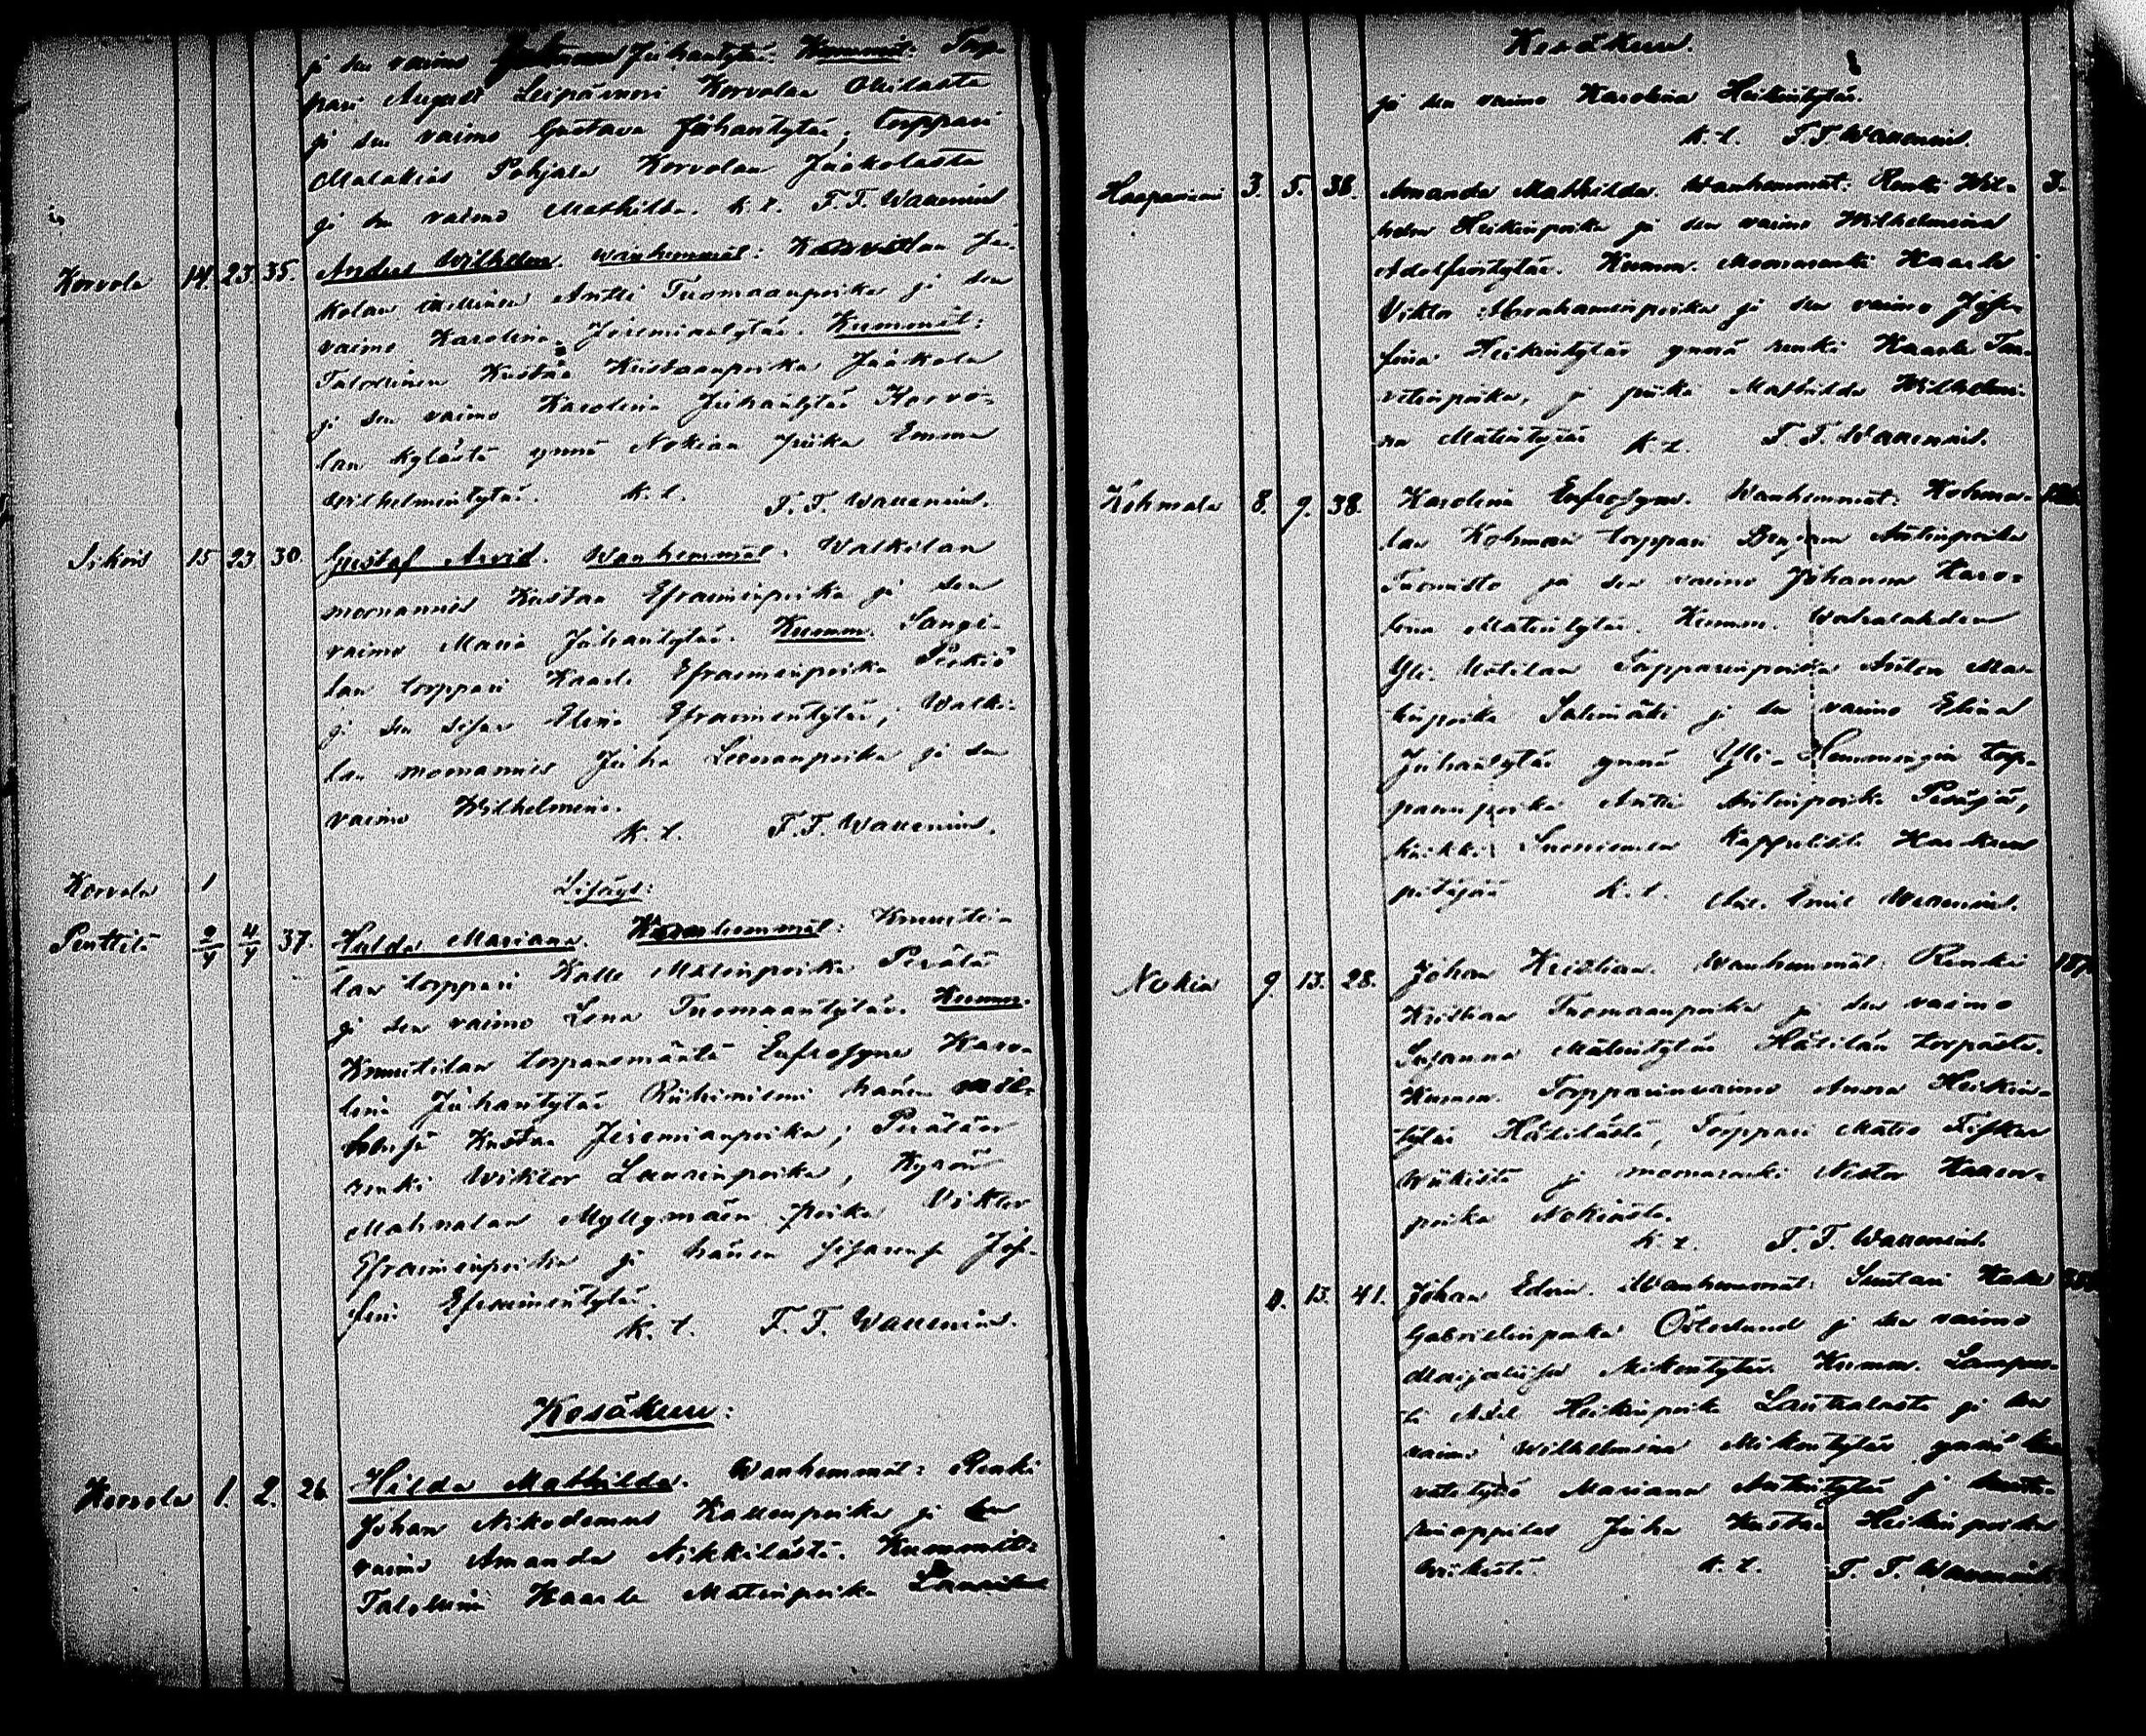 ja sen vaimo Juhantytär. Kummit: Torp-
pari August Leipämeri Korvolan Ollilasta
ja sen vaimo Gustava Juhantytär; torppari
Malakias Pohjala Korvolan Jaakolasta
ja sen vaimo Mathilda. k. l. F. F. Wallenius
Korvola 14. 23. 35. Anders Wilhelm. Wanhemmat: Korvolan Jaa-
kolan itsellinen Antti Tuomaanpoika ja sen
vaimo Karolina Jeremiantytär. Kummit:
Talollinen Kustaa Kustaanpoika Jaakola
ja sen vaimo Karolina Juhantytär Korvo-
lan kylästä ynnä Nokian piika Emma
Wilhelmintytär. k. l. F. F. Wallenius.
Sikuis 15 23 30. Gustaf Arvid. Wanhemmat: Walkilan
muonamies Kustaa Efraiminpoika ja sen
vaimo Maria Juhantytär. Kumm. Sangi-
lan torppari Kaarle Efraiminpoika Perkiö
ja sen sisar Elina Efraimintytär, Walki-
lan muonamies Juha Leenanpoika ja sen
vaimo Wilhelmina.
k. l. F. F. Wallenius.
Korvola / Lisäys:
Penttilä 2/4 4/4 37. Hulda Mariana. Wanhemmat: Knuuti-
lan torppari Kalle Matinpoika Perälä
ja sen vaimo Lena Tuomaantytär. Kumm.
Knuutilan torpanemäntä Eufrosyne Karo-
lina Juhantytär Riihiniemi hänen
Kustaa Jeremianpoika, Perälän
renki Wiktor Laurinpoika, Kyrön
Mahnalan Myllymäen poika Viktor
Efraiminpoika ja hänen sisarensa Jose-
fina Efraimintytär.
k. l. F. F. Wallenius.
Kesäkuu:
Korvola 1. 2. 26 Hilda Mathilda. Wanhemmat: Renki
Johan Nikodemus Kallenpoika ja sen
vaimo Amanda Nikkilästä. Kummit:
Talollinen Kaarle Matinpoika
Kesäkuu.
ja sen vaimo Karolina Heikintytär.
k. l. F. F. Wallenius.
Haapaniemi 3. 5. 38. Amanda Mathilda. Wanhemmat: Renki Wil- 3.
helm Heikinpoika ja sen vaimo Wilhelmina
Adolfintytär. Kumm. Muonarenki Kaarle
Viktor Abrahaminpoika ja sen vaimo Jose-
fina Heikintytär ynnä renki Kaarle Taa-
vetinpoika, ja piika Mathilda Wilhelmi-
na Matintytär k. l. F. F. Wallenius.
Kohmala 8. 9. 38. Karolina Eufrosyne. Wanhemmat: Kohma-
lan Kohman torppari Benjam Antinpoika
Tuomisto ja sen vaimo Johanna Karo-
lina Matintytär. Kumm. Wahalahden
Yli-Mätilän Torpparinpoika Anton Ma-
tinpoika Salimäki ja sen vaimo Elina
Juhantytär ynnä Yli-Hemmingin torp-
parinpoika Antti Antinpoika Peräjä,
kaikki Suoniemen Kappelista Karkun
pitäjää k. l. Emil
Nokia 9. 13. 28. Johan Kristian. Wanhemmat: Renki
Kristian Tuomaanpoika ja sen vaimo
Susanna Matintytär Hätilän torpasta.
Kumm. Torpparinvaimo Anna Heikin-
tytär Hätilästä, Torppari Matts Fisker
Wiikistä ja muonarenki Nestor Kaarn-
poika Nokiasta.
k. l. F. F. Wallenius.
13. 41. Johan Edvin. Wanhemmat: Suutari Kalle
Gabrielinpoika Österlund ja sen vaimo
Maijaliisa Mikontytär. Kumm. Lampuo-
ti Axel Heikinpoika Lauttalasta ja sen
vaimo Wilhelmina Mikontytär ynnä
Mariana Antintytär ja
oppilas Juha Kustaa Heikinpoika
k. l. F. F. Wallenius